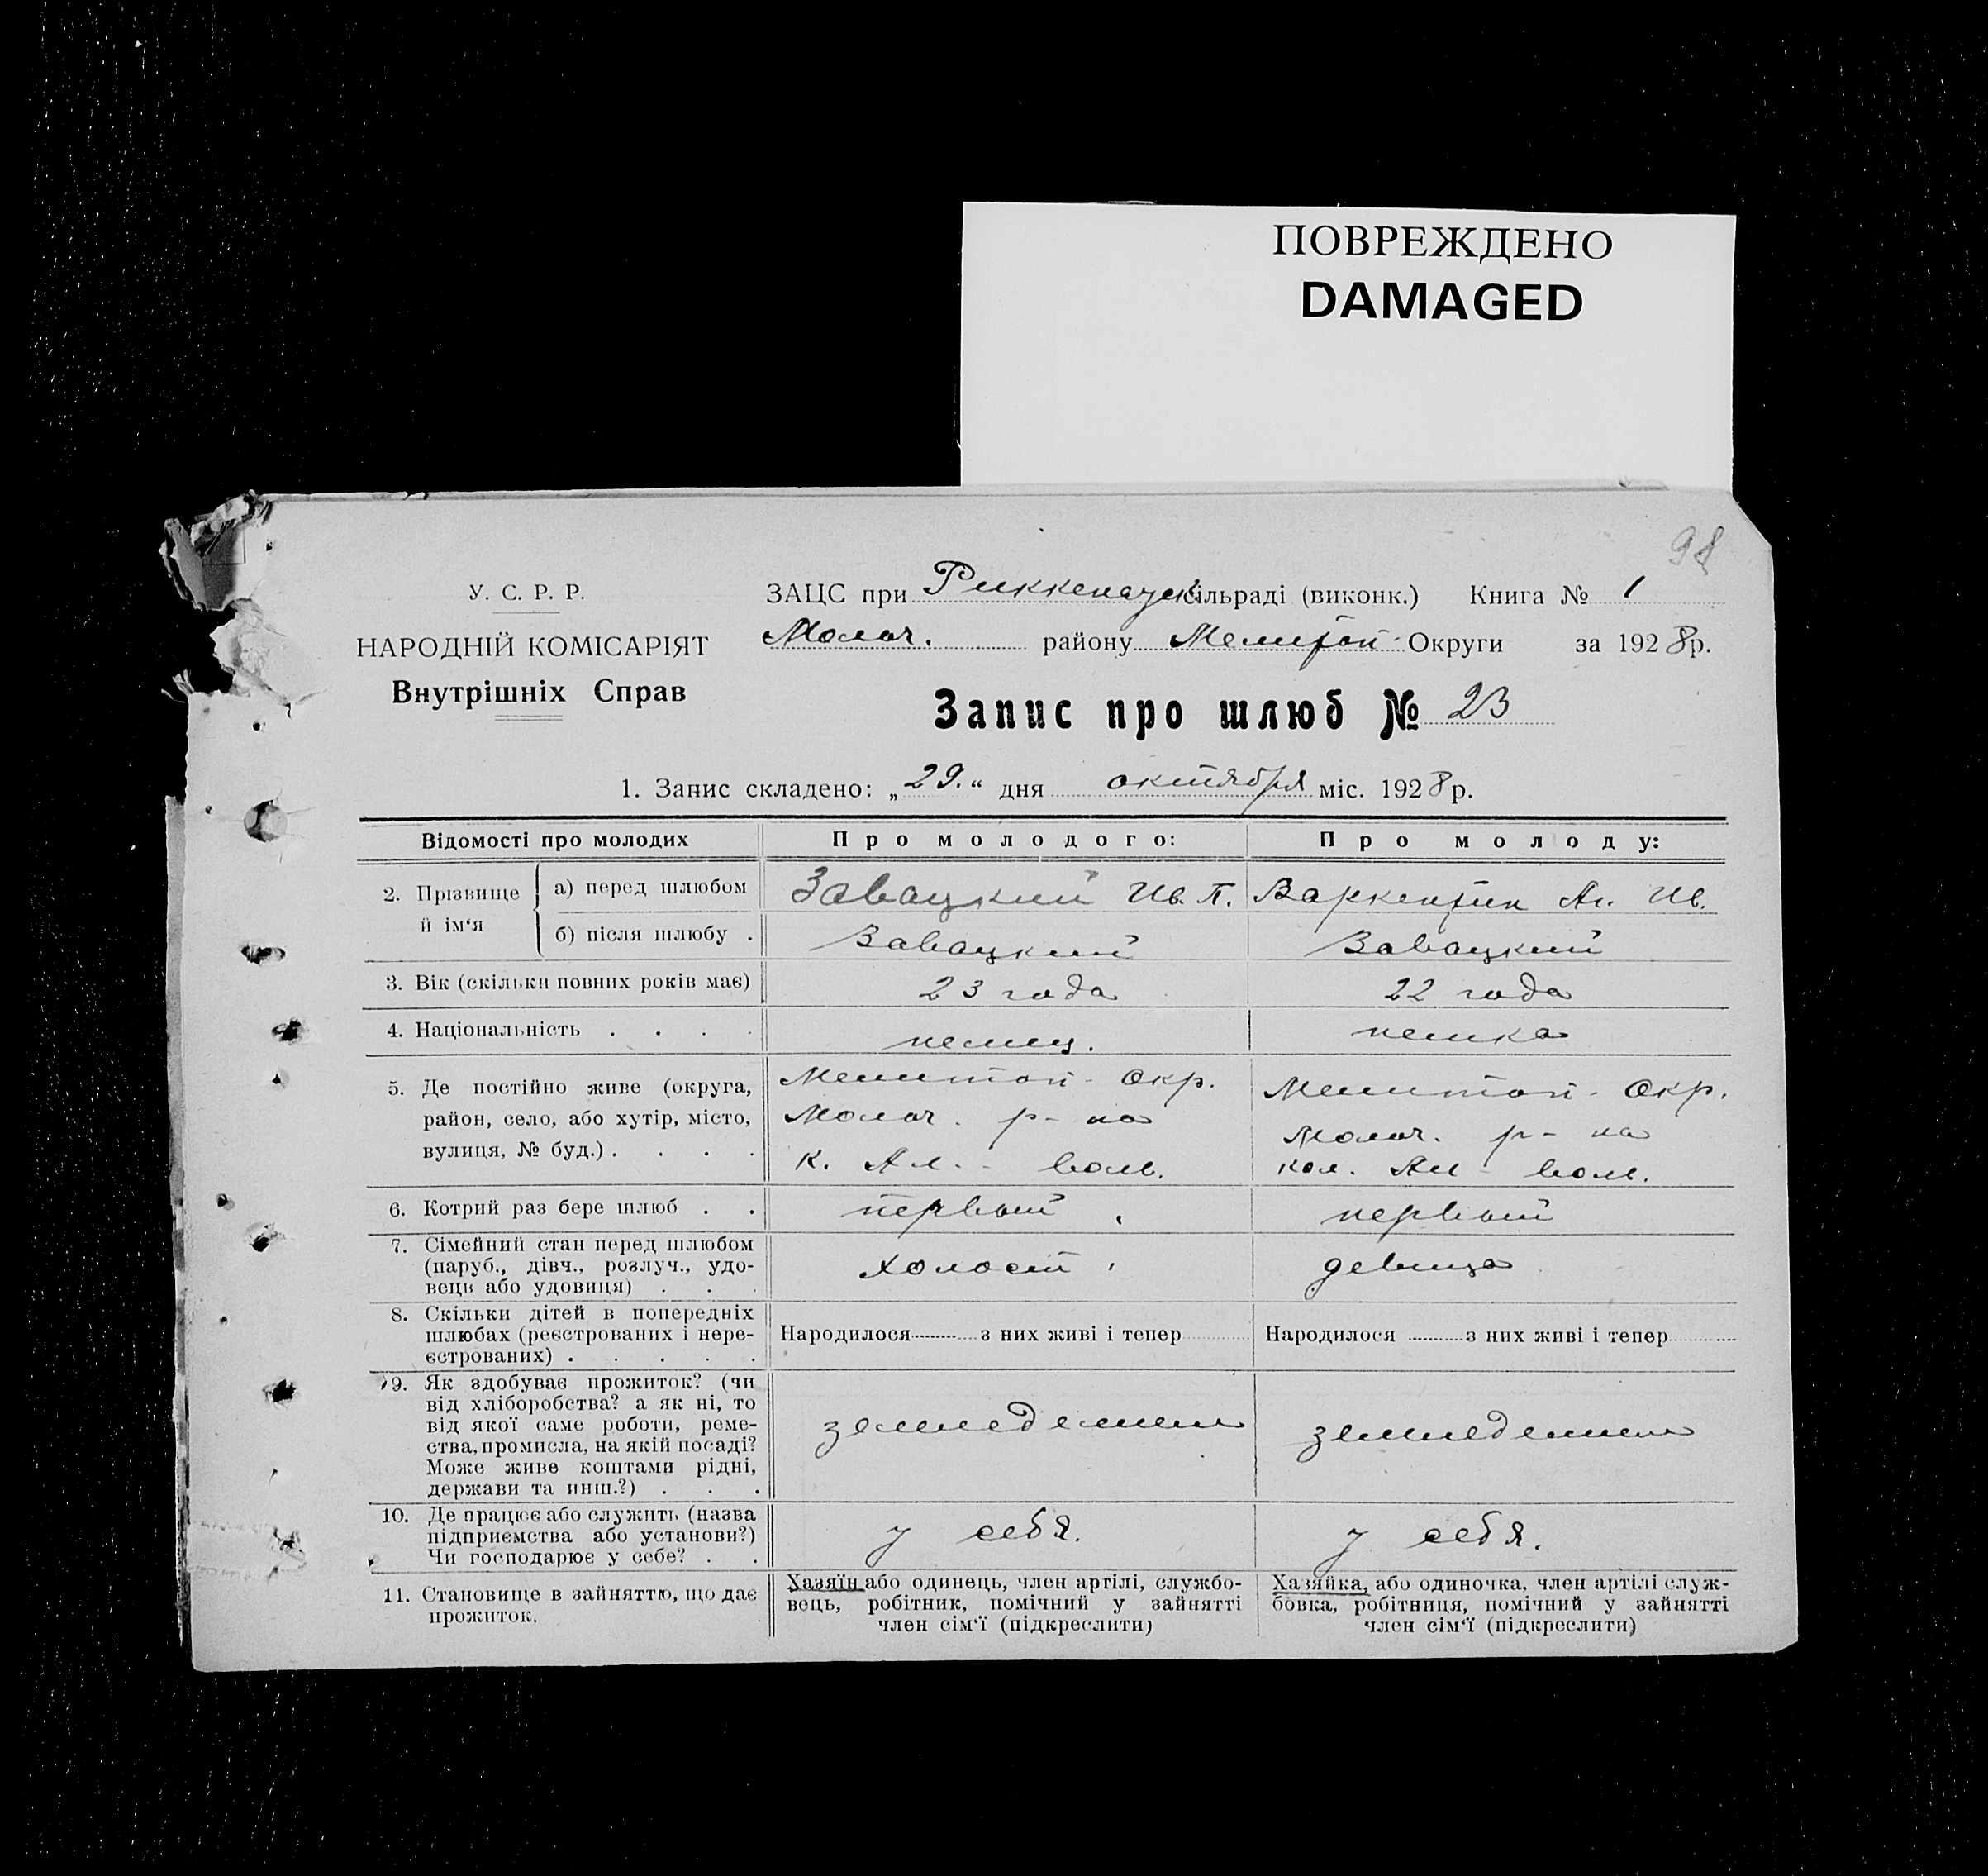 ПОВРЕЖДЕНО
DAMAGED
98
У. С. Р. Р.
НАРОДНІЙ КОМІСАРІЯТ
Внутрішніх Справ
ЗАЦС при Риккенауск сільраді (виконк.) Книга № 1
Молоч. району Мелитоп. Округи за 1928 р.
Запис про шлюб № 23
1. Запис складено: „29.“ дня октября міс. 1928 р.
Відомості про молодих Про молодого: Про молоду:
2. Прізвище й ім‘я
а) перед шлюбом Завацкий Ив. П. Варкентин Ив.
б) після шлюбу . Завацкий Завацкий
3. Вік (скільки повних років має) 23 года 22 года
4. Національність . . . . немец. немка
5. Де постійно живе (округа, район, село, або хутір, місто, вулиця, № буд.) . . . .
Мелитоп. Окр.
Молоч. р-на
К. Ал. - воль.
Мелитоп. Окр.
Молоч. р-на
кол. Ал - воль.
6. Котрий раз бере шлюб . . первый первый
7. Сімейний стан перед шлюбом
(паруб., дівч., розлуч., удо-
вець або удовиця) . . . холост девица
8. Скільки дітей в попередніх
шлюбах (реєстрованих і нере-
єстрованих) . . . . .
Народилося з них живі і тепер Народилося з них живі і тепер
9. Як здобуває прожиток? (чи
від хліборобства? а як ні, то
від якої саме роботи, реме-
ства, промисла, на якій посаді?
Може живе коштами рідні,
держави та инш.?) . . .
земледелием земледелием
10. Де працює або служить (назва
підприємства або установи?)
Чи господарює у себе? . .
у себя. у себя.
11. Становище в зайняттю, що дає
прожиток.
Хазяїн або одинець, член артілі, службо-
вець, робітник, помічний у зайнятті
член сім‘ї (підкреслити)
Хазяйка, або одиночка, член артілі служ-
бовка, робітниця, помічний у зайнятті
член сім‘ї (підкреслити)